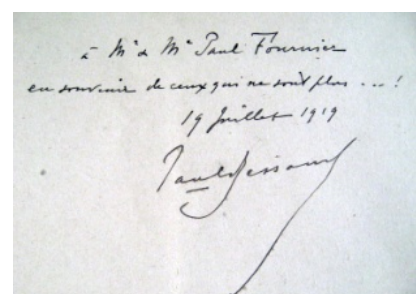 à Mr & Me Paul Fournier
en souvenir de ceux qui ne sont plus ... !
19 Juillet 1919
Paul